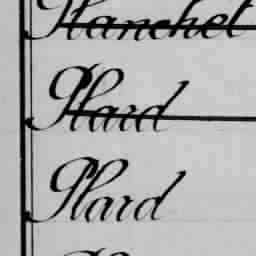 Planchet
Plard
Plard